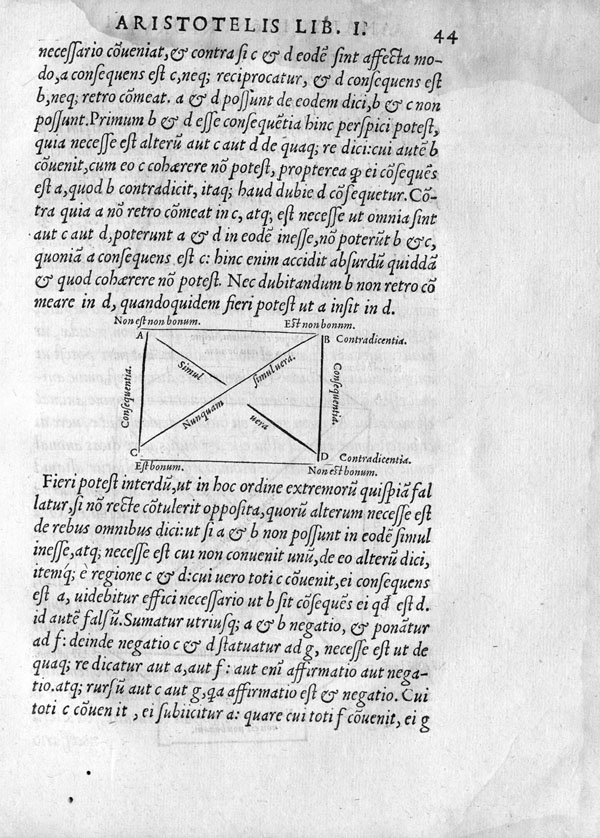 ARISTOTELIS LIB. I. 44
necessario cõueniat, & contra si c & d eodẽ sint affecta mo-
do, a consequens est c, neq; reciprocatur, & d consequens est
b, neq; retro cõmeat. a & d possunt de eodem dici, b & c non
possunt. Primum b & d esse consequẽtia hinc perspici potest,
quia necesse est alterũ aut c aut d de quaq; re dici: cui autẽ b
cõuenit, cum eo c cohærere nõ potest, propterea ꝙ ei cõsequẽs
est a, quod b contradicit, itaq; haud dubie d cõsequetur. Cõ-
tra quia a nõ retro cõmeat in c, atq; est necesse ut omnia sint
aut c aut d, poterunt a & d in eodẽ inesse, nõ poterũt b & c,
quoniã a consequens est c: hinc enim accidit absurdũ quiddã
& quod cohærere nõ potest. Nec dubitandum b non retro cõ
meare in d, quandoquidem fieri potest ut a insit in d.
Non est non bonum. Est non bonum.
A B Contradicentia.
Simul simul uera.
Consequentia. Consequentia.
Nunquam uera
C D Contradicentia.
Est bonum. Non est bonum.
Fieri potest interdũ, ut in hoc ordine extremorũ quispiã fal
latur, si nõ recte cõtulerit opposita, quorũ alterum necesse est
de rebus omnibus dici: ut si a & b non possunt in eodẽ simul
inesse, atq; necesse est cui non conuenit unũ, de eo alterũ dici,
itemq́; è regione c & d: cui uero toti c cõuenit, ei consequens
est a, uidebitur effici necessario ut b sit cõsequẽs ei qđ est d.
id autẽ falsũ. Sumatur utriusq; a & b negatio, & ponãtur
ad f: deinde negatio c & d statuatur ad g, necesse est ut de
quaq; re dicatur aut a, aut f: aut enĩ affirmatio aut nega-
tio. atq; rursũ aut c aut g, qa affirmatio est & negatio. Cui
toti c cõuen it , ei subiicitur a: quare cui toti f cõuenit, ei g